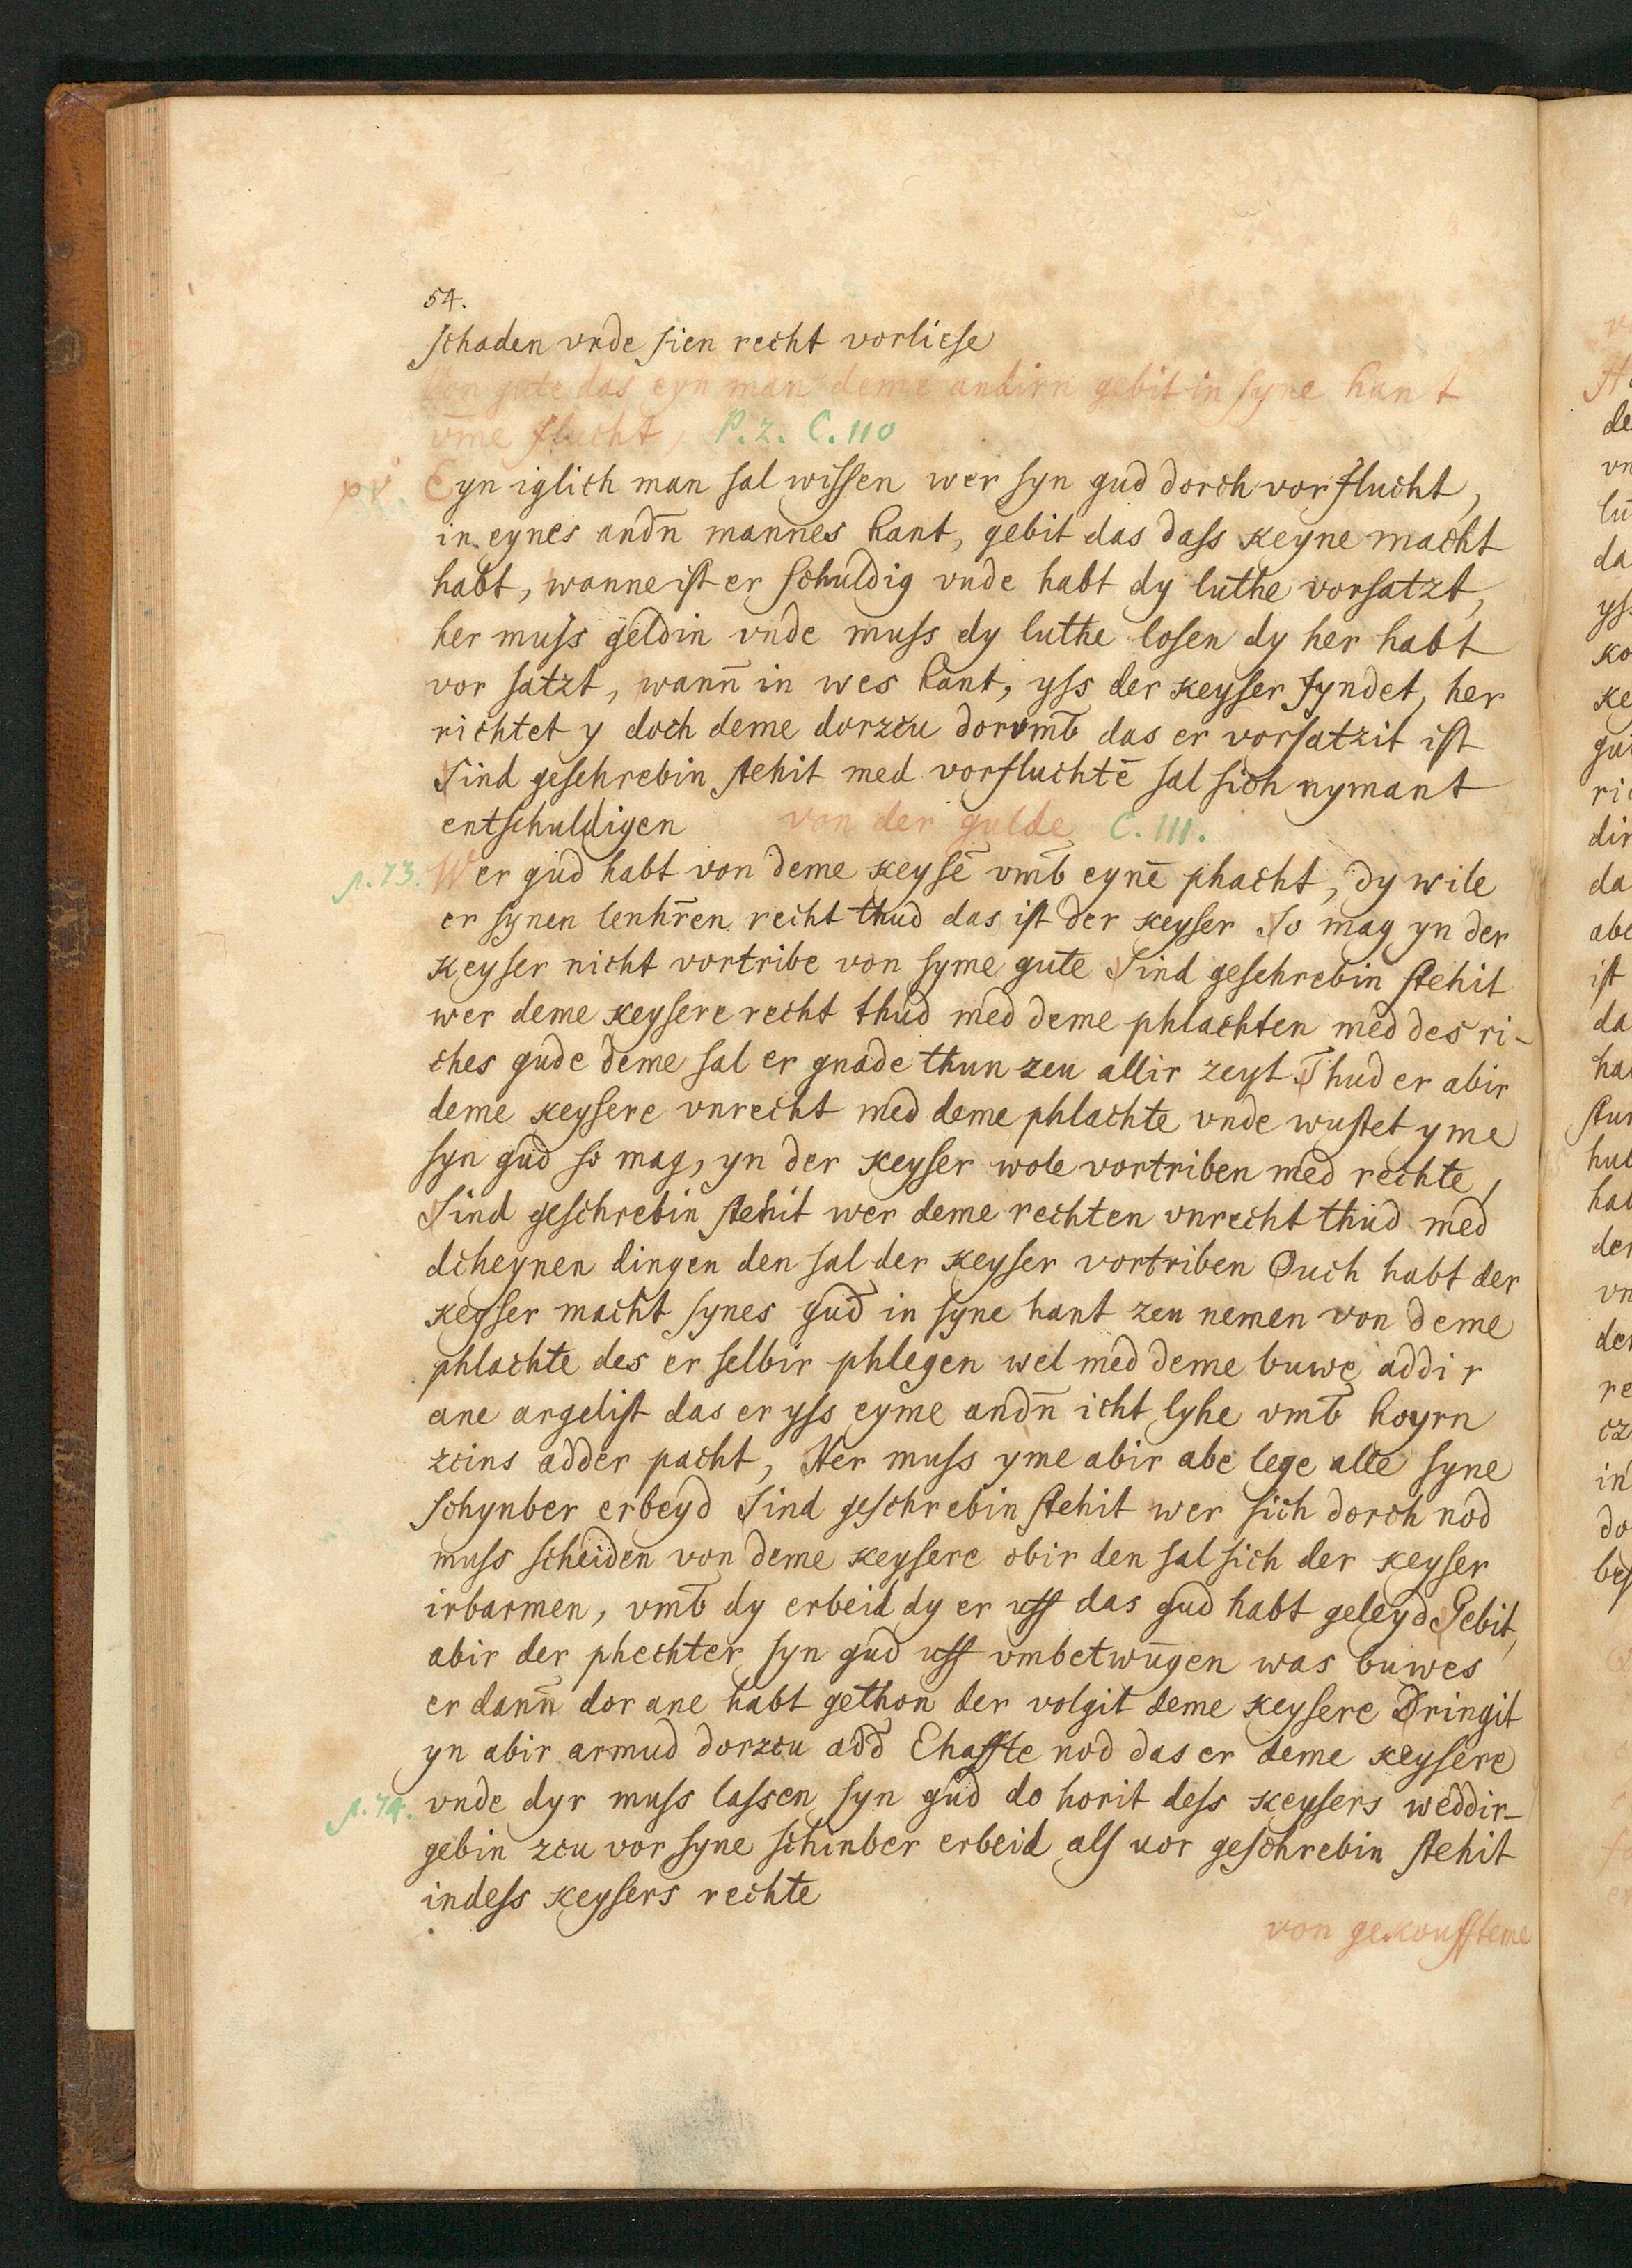 54.
schaden vnde sien recht vorliese
Von gute das eyn man deme andirn gebit in syne hant
vme flucht, P. 2. C. 110
Eyn iglich man sal wissen wer syn gud dorch vorflucht,
in eynes andn̄ mannes hant, gebit das dass keyne macht
habt, wanne ist er schuldig vnde habt dy luthe vorsatzt,
her muss geldin vnde muss dy luthe losen dy her habt
vor satzt, wann̄ in wes hant, yss der keyser fyndet, her
richtet y doch deme dorzcu dorvmb̄ das er vorsatzit ist
Sind geschrebin stehit med vorfluchtē sal sich nymant
entschuldigen von der gulde C. 111.
p. 73. Wer gud habt von deme keysē vmb̄ eynē phacht, dy wile
er synen lenhr̄en recht thud das ist der keyser So mag yn der
keyser nicht vortribe von syme gute Sind geschrebin stehit
wer deme keysere recht thud med deme phlachten med des ri-
ches gude deme sal er gnade thun zcu allir zeyt Thud er abir
deme keysere vnrecht med deme phlachte vnde wustet yme
syn gud so mag, yn der keyser wole vortriben med rechte,
Sind geschrebin stehit wer deme rechten vnrecht thud med
dcheynen dingen den sal der keyser vortriben Ouch habt der
keyser macht synes gud in syne hant zcu nemen von deme
phlachte des er selbir phlegen wel med deme buwe addir
ane argelist das er yss eyme andn̄ icht lyhe vmb̄ hoyrn
zcins adder pacht, Her muss yme abir abe lege alle syne
schynber erbeyd Sind geschrebin stehit wer sich dorch nod
muss scheiden von deme keysere obir den sal sich der keyser
irbarmen, vmb̄ dy erbeid dy er uff das gud habt geleyd Gebit,
abir der phechter syn gud uff vmbetwūgen was buwes
er dann̄ dor ane habt gethon der volgit deme keysere Dringit
yn abir armud dorzcu add̄ Ehaffte nod das er deme keysere
p. 74. vnde dyr muss lassen syn gud do horit dess keysers weddir-
gebin zcu vor syne schinber erbeid als uor geschrebin stehit
indess keysers rechte
von gekouffteme